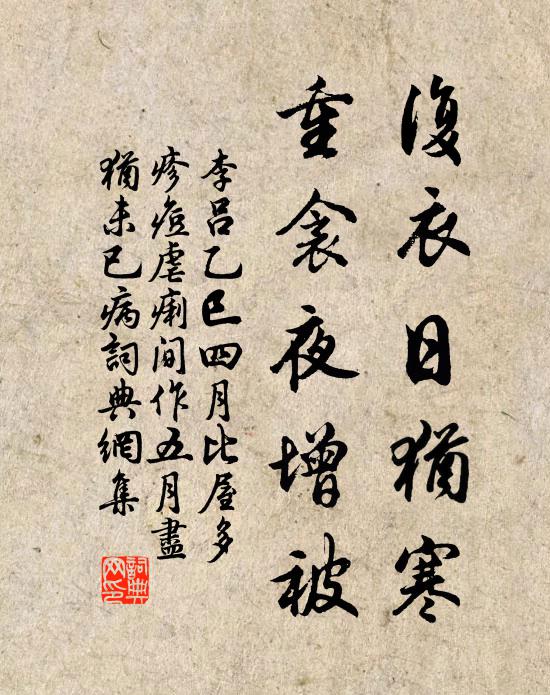 復衣日猶寒
重衾夜增被
李呂乙巳四月比屋多
疹痘虐痢間作五月盡
猶未已病詞典網集
詞典
网印